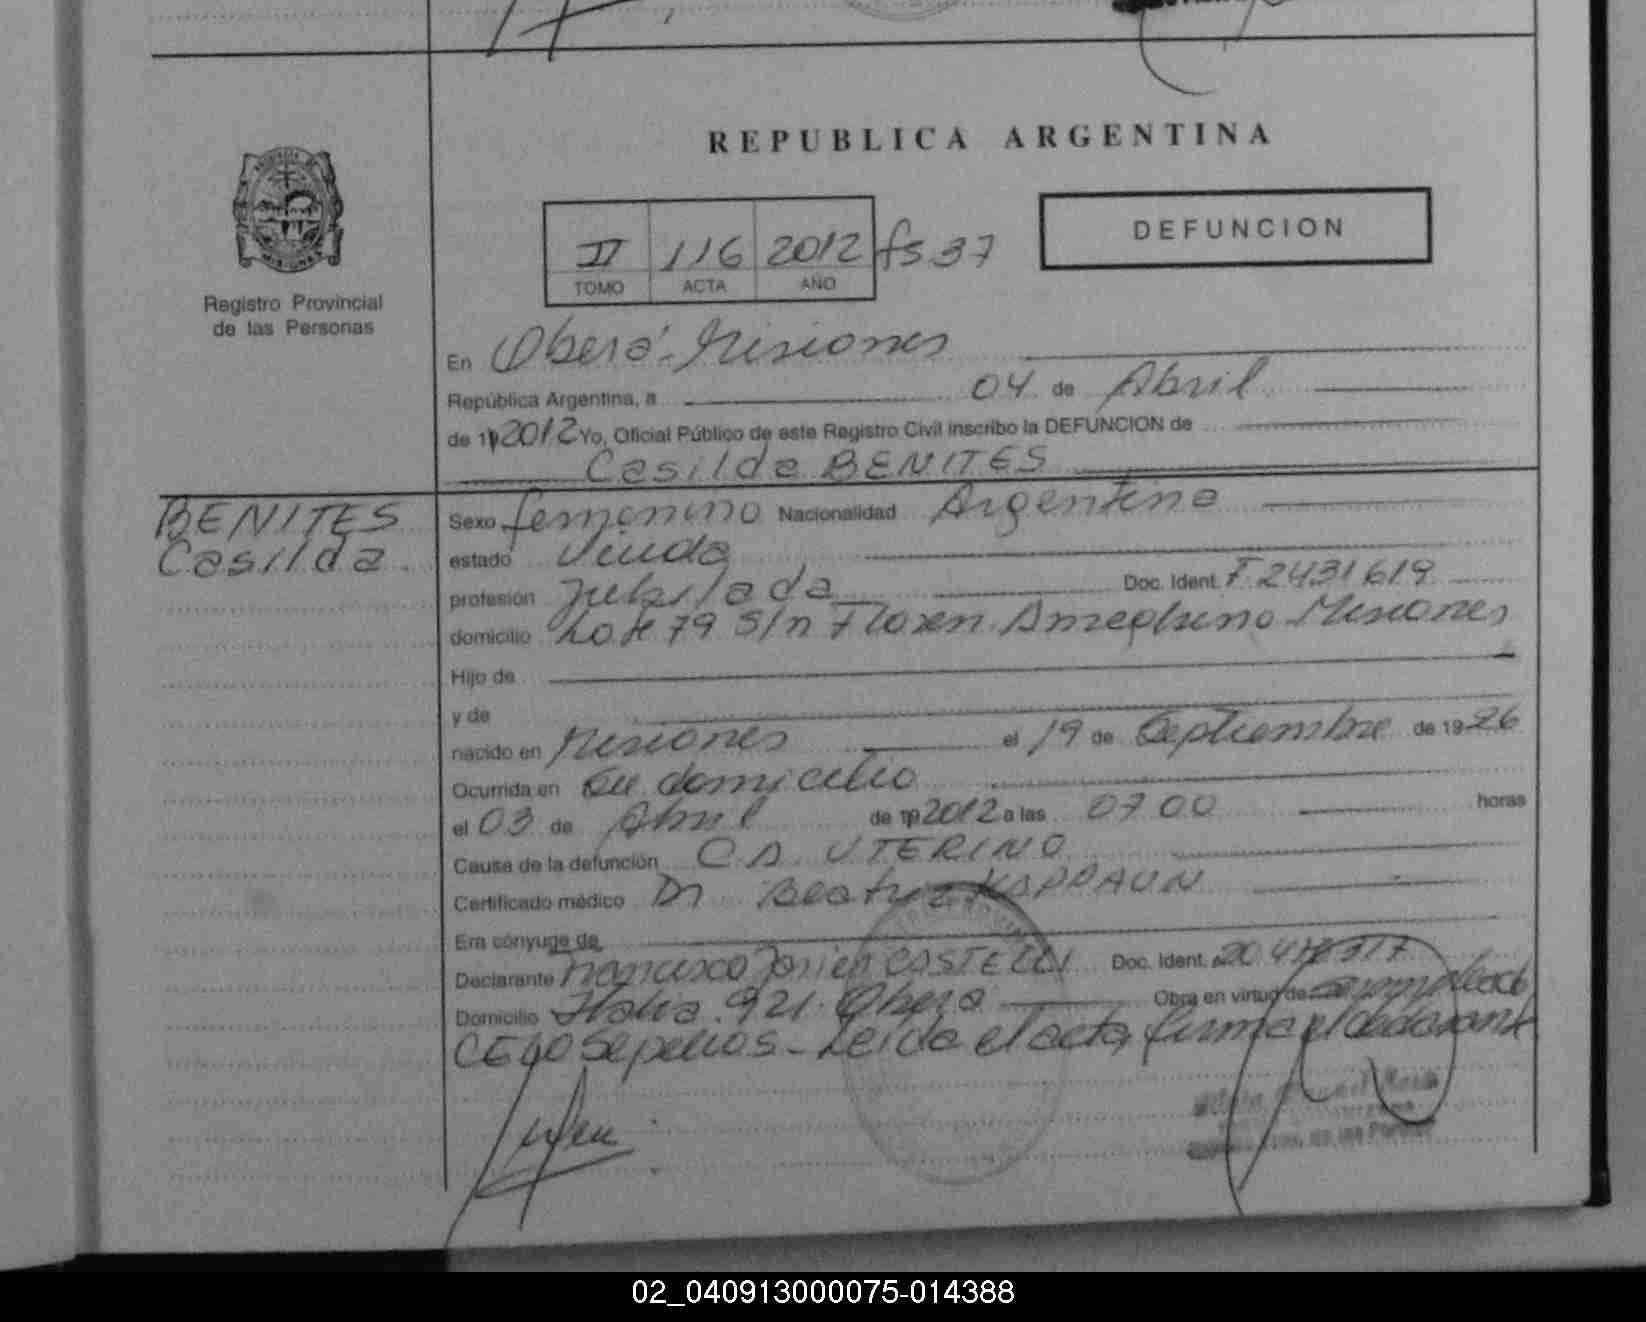 REPUBLICA ARGENTINA
II 116 2012 fs 37
TOMO ACTA AÑO
DEFUNCION
Registro Provincial
de las Personas
En Oberá - Misiones
República Argentina, a 04 de Abril
de 19 2012 Yo, Oficial Público de este Registro Civil inscribo la DEFUNCION de
Casilda BENITES
BENITES
Casilda
Sexo femenino Nacionalidad Argentina
estado Viuda
profesión Jubilada Doc. Ident. F 2431619
domicilio Lote 79 S/n Floren. Ameghino - Misiones
Hijo de
y de
nacido en Misiones el 19 de Septiembre de 1926
Ocurrida en su domicilio
el 03 de Abril de 19 2012 a las 07 00 horas
Causa de la defunción CA UTERINO
Certificado médico Dr Beatriz KAPPAUN
Era cónyuge de
Declarante Francisco Javier CASTELLI Doc. Ident.
Domicilio Italia 921 - Oberá Obra en virtud de empleado
Sepelios - Leída el acta, firma el declarante
de las Personas
02_040913000075-014388